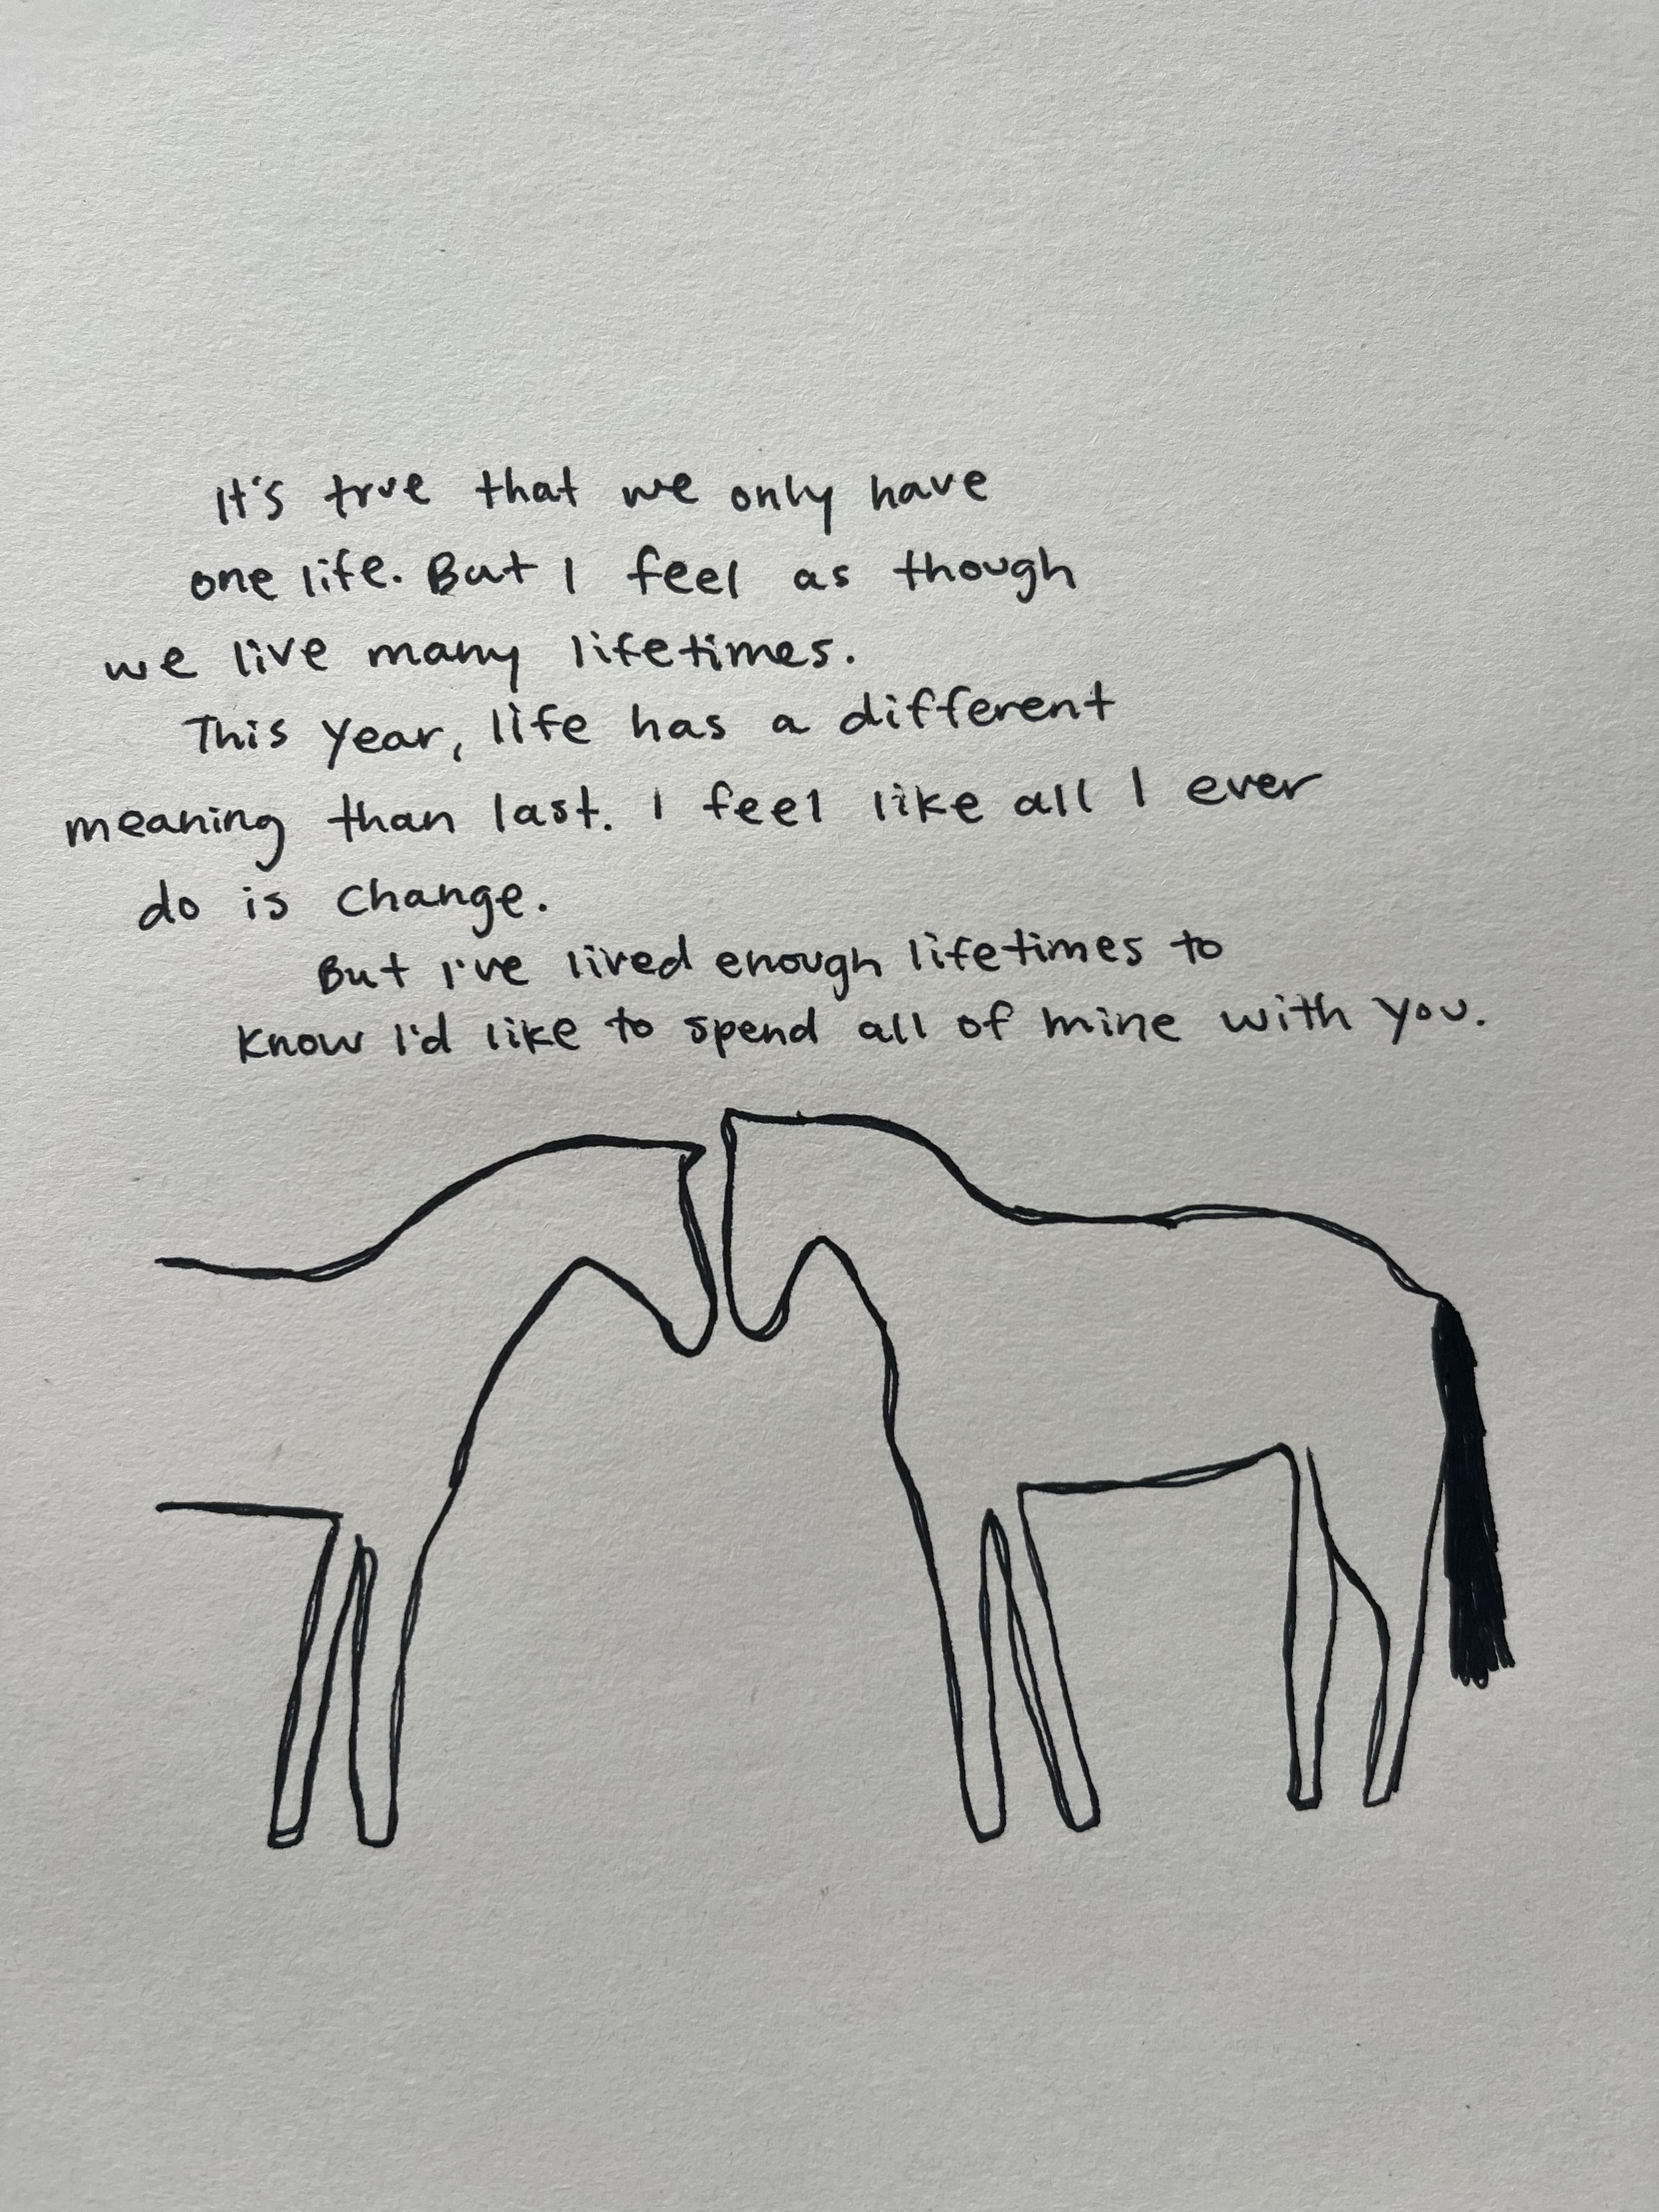 It's true that we only have
one life. But I feel as though
we live many lifetimes.
This year, life has a different
meaning than last. I feel like all I ever
do is change.
But I've lived enough lifetimes to
know I'd like to spend all of mine with you.